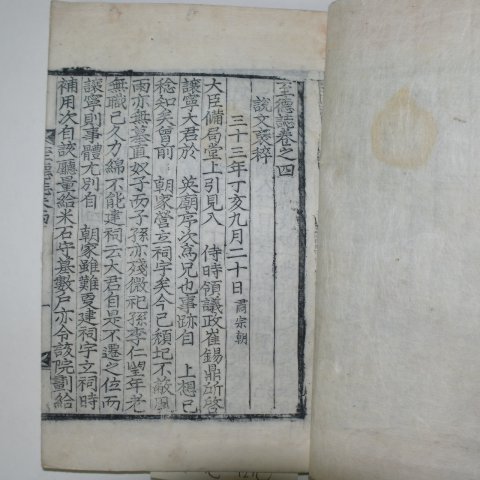 至德誌卷之四
說文裒粹
三十三年丁亥九月二十日 肅宗朝
大臣備局堂上引見入 侍時領議政崔錫鼎所啓
讓寧大君於 英廟序次爲兄也事跡自 上想已
稔知矣曾前 朝家營立祠宇矣今已頹圮不蔽風
雨亦無墓直奴子而子孫亦殘微祀孫李仁望年老
無職已久力綿不能建祠云大君自是不遷之位而
讓寧則事體尤別自 朝家雖難更建祠宇立祠時
補用次自該廳量給米石守墓數戶亦令該院劃給